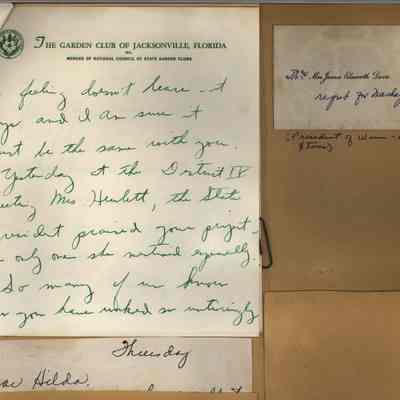 THE GARDEN CLUB OF JACKSONVILLE, FLORIDA
INC.
MEMBER OF NATIONAL COUNCIL OF STATE GARDEN CLUBS
feeling doesn't leave - it
and I am sure it
be the same with you.
Yesterday at the District IV
Mrs Hewlett, the State
praised your project -
only one she mentioned especially.
So many of us know
you have worked so untiringly
Thursday
Hilda.
Mrs. James Ellsworth Davis
regret for Tuesday
(President of Winn -
Stores)